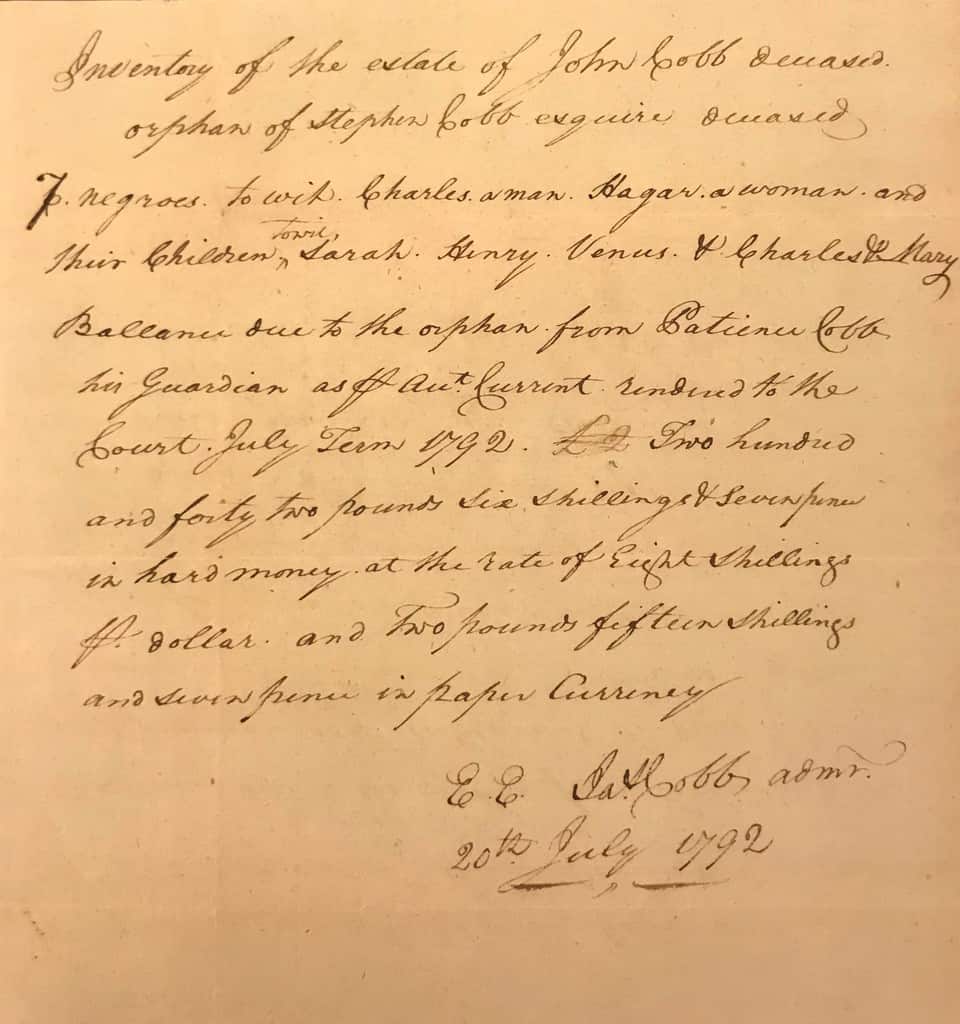 Inventory of the estate of John Cobb deceased.
orphan of Stephen Cobb esquire deceased
7. negroes. to wit. Charles. a man. Hagar. a woman. and
their Children towit, Sarah. Henry. Venus. & Charles & Mary
Ballance due to the orphan from Patience Cobb
his Guardian as ⅌ Acct. Current rendered to the
Court. July Term 1792. £2 Two hundred
and forty two pounds six shillings & Seven pence
in hard money. at the rate of Eight shillings
⅌. dollar. and Two pounds fifteen shillings
and seven pence in paper Currency
E. E. Jas. Cobb admr.
20th July 1792